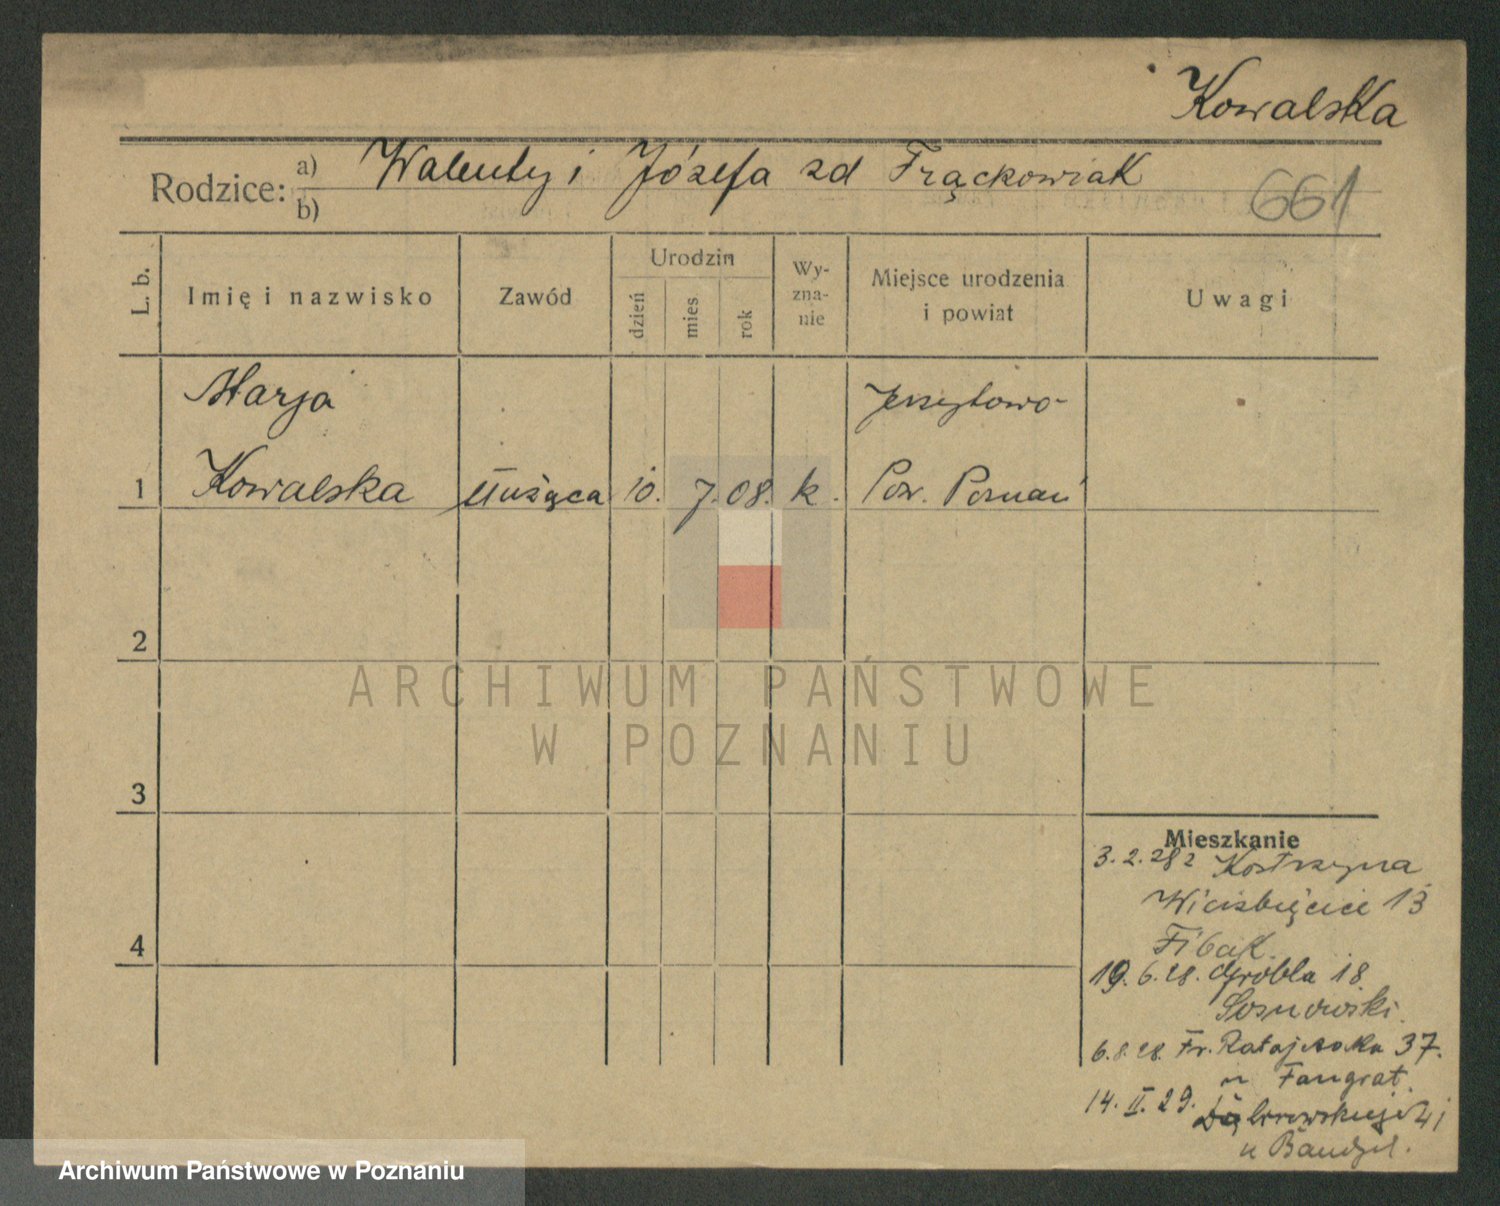 Kowalska
Rodzice: a) Walenty i Józefa zd Frąckowiak
b)
661
L. b.
Imię i nazwisko
Zawód
Urodzin
dzień
mies.
rok
Wy-
zna-
nie
Miejsce urodzenia
i powiat
Uwagi
Marja
1 Kowalska służąca 10. 7. 08. k. Pow. Poznań
2
3
4
ARCHIWUM PAŃSTWOWE
W POZNANIU
Mieszkanie
3.2.28 z Kostrzyna
13
Fibak.
19.6.28. Grobla 18
Sosnowski.
6.8.28. Fr. Ratajczaka 37.
u Fangrat.
14.II.29. Dąbrowskiego 41
u
Archiwum Państwowe w Poznaniu